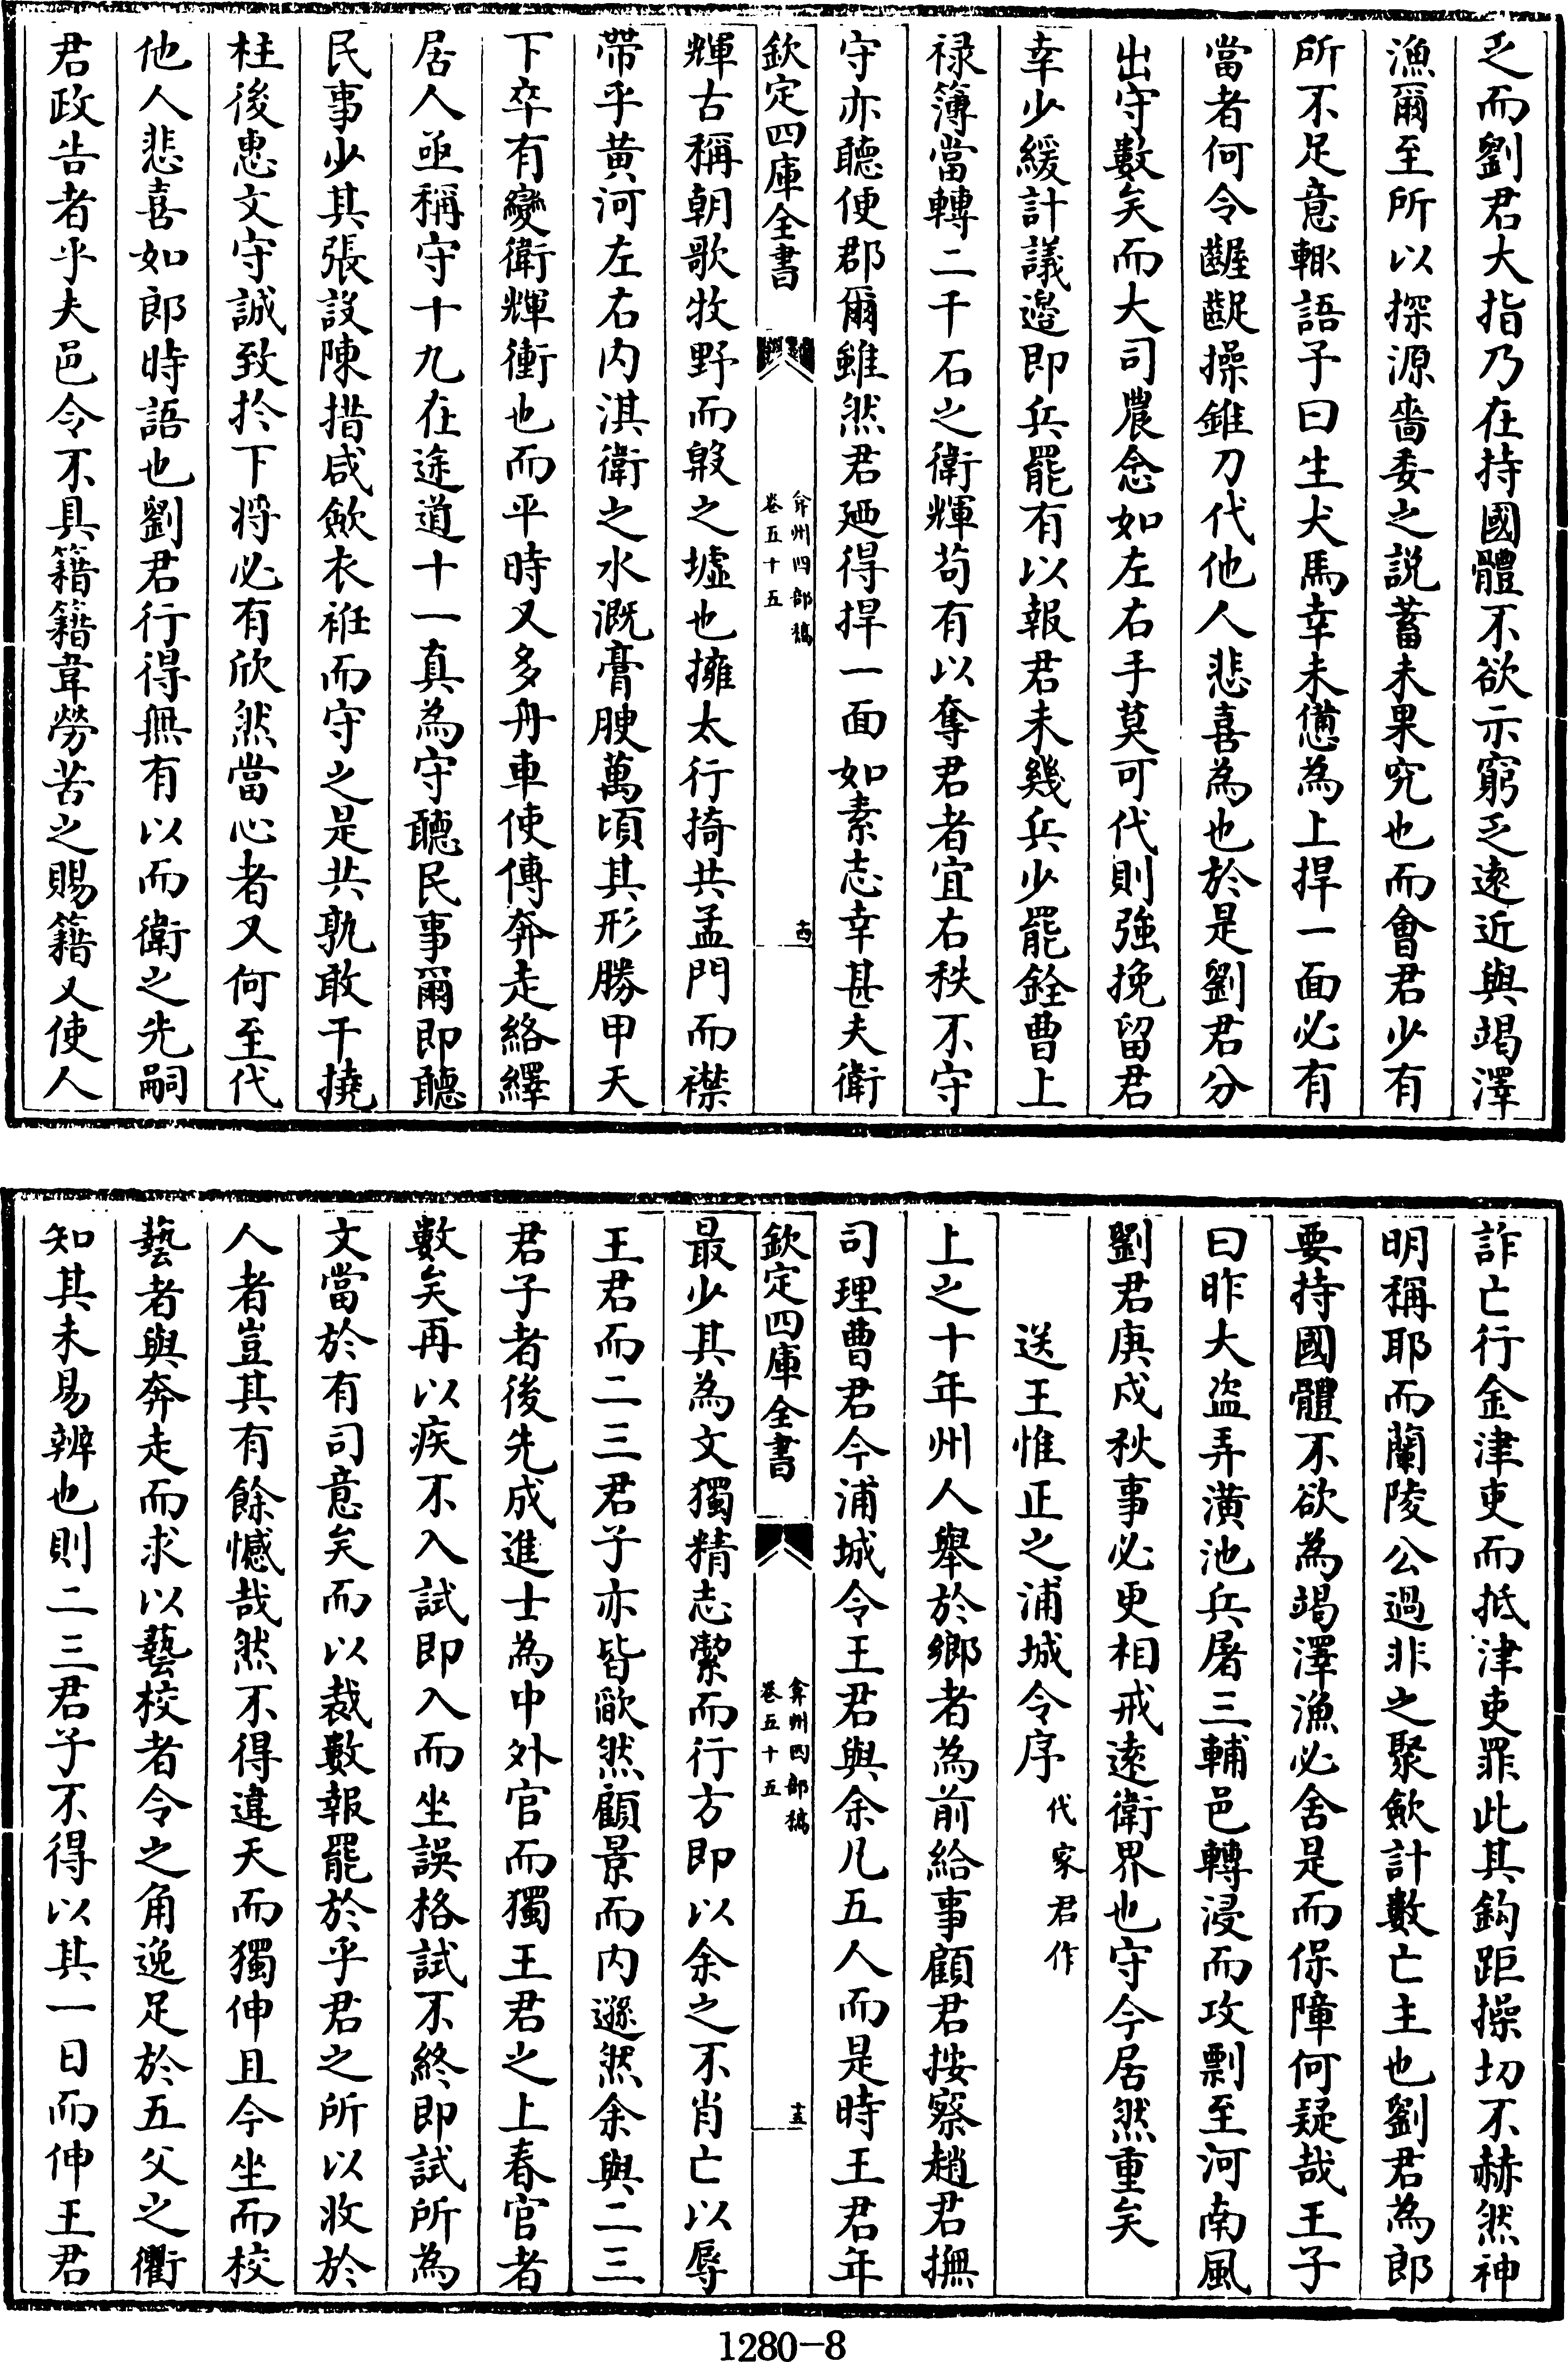 乏而劉君大指乃在持國體不欲示窮乏遠近與竭澤
漁爾至所以探源嗇委之説蓄未果究也而會君少有
所不足意輙語予曰生犬馬幸未憊為上捍一面必有
當者何令齷齪操錐刀代他人悲喜為也於是劉君分
出守數矣而大司農念如左右手莫可代則強挽留君
幸少緩計議邉即兵罷有以報君未幾兵少罷銓曹上
禄簿當轉二千石之衛輝茍有以奪君者宜右秩不守
守亦聽便郡爾雖然君廼得捍一面如素志幸甚夫衛
欽定四庫全書
弇州四部稿
卷五十五
十四
輝古稱朝歌牧野而殷之墟也擁太行掎共孟門而襟
帶乎黄河左右内淇衛之水溉膏腴萬頃其形勝甲天
下卒有變衛輝衝也而平時又多舟車使傳奔走絡繹
居人亟稱守十九在途道十一真為守聽民事爾即聽
民事少其張設陳措咸斂衣袵而守之是共孰敢干撓
柱後惠文守誠致於下將必有欣然當心者又何至代
他人悲喜如郎時語也劉君行得無有以而衛之先嗣
君政告者乎夫邑令不具籍籍韋勞苦之賜籍又使人
詐亡行金津吏而抵津吏罪此其鈎距操切不赫然神
明稱耶而蘭陵公過非之聚斂計數亡主也劉君為郎
要持國體不欲為竭澤漁必舍是而保障何疑哉王子
曰昨大盗弄潢池兵屠三輔邑轉浸而攻剽至河南風
劉君庚戌秋事必更相戒遠衛界也守今居然重矣
送王惟正之浦城令序代家君作
上之十年州人舉於鄉者為前給事顧君按察趙君撫
司理曹君今浦城令王君與余凡五人而是時王君年
欽定四庫全書
弇州四部稿
卷五十五
十五
最少其為文獨精志潔而行方即以余之不肖亡以辱
王君而二三君子亦皆歉然顧景而内遜然余與二三
君子者後先成進士為中外官而獨王君之上春官者
數矣再以疾不入試即入而坐誤格試不終即試所為
文當於有司意矣而以裁數報罷於乎君之所以收於
人者豈其有餘憾哉然不得違天而獨伸且今坐而校
藝者與奔走而求以藝校者令之角逸足於五父之衢
知其未易辨也則二三君子不得以其一日而伸王君
1280-8